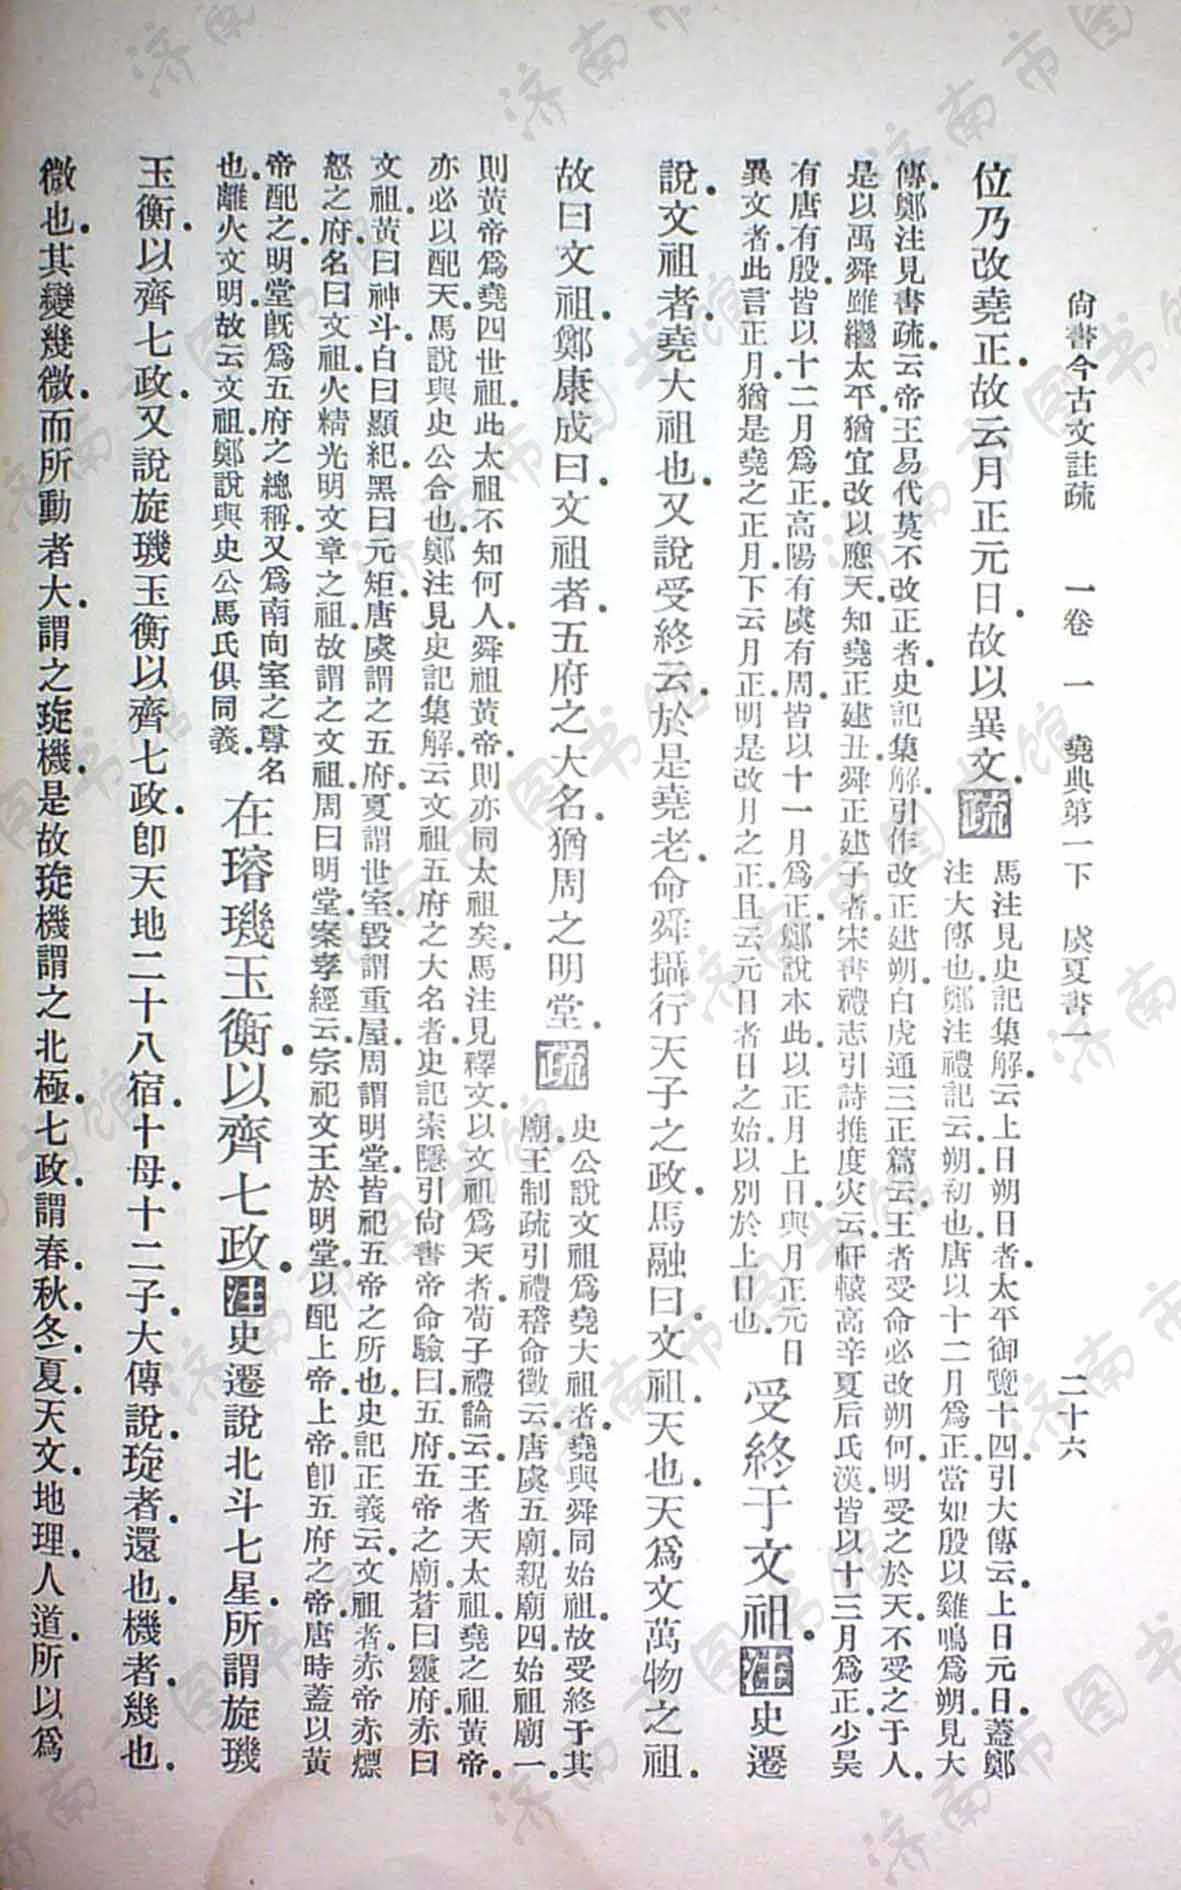 尚書今古文註疏　一卷一　堯典第一下　虞夏書一　二十六
位乃改堯正故云月正元日故以異文疏
馬注見史記集解云上日朔日者太平御覽十四引大傳云上日元日蓋鄭
注大傳也鄭注禮記云朔初也唐以十二月為正當如殷以雞鳴為朔見大
傳鄭注見書疏云帝王易代莫不改正者史記集解引作改正建朔白虎通三正篇云王者受命必改朔何明受之於天不受之于人
是以禹舜雖繼太平猶宜改以應天知堯正建丑舜正建子者宋書禮志引詩推度災云軒轅高辛夏后氏漢皆以十三月為正少昊
有唐有殷皆以十二月為正高陽有虞有周皆以十一月為正鄭說本此以正月上日與月正元日
異文者此言正月猶是堯之正月下云月正明是改月之正且云元日者日之始以別於上日也
受終于文祖注史遷
說文祖者堯大祖也又說受終云於是堯老命舜攝行天子之政馬融曰文祖天也天為文萬物之祖
故曰文祖鄭康成曰文祖者五府之大名猶周之明堂疏
史公說文祖為堯大祖者堯與舜同始祖故受終于其
廟王制疏引禮稽命徵云唐虞五廟親廟四始祖廟一
則黃帝為堯四世祖此太祖不知何人舜祖黃帝則亦同太祖矣馬注見釋文以文祖為天者荀子禮論云王者天太祖堯之祖黃帝
亦必以配天馬說與史公合也鄭注見史記集解云文祖五府之大名者史記索隱引尚書帝命驗曰五府五帝之廟蒼曰靈府赤曰
文祖黃曰神斗白曰顯紀黑曰元矩唐虞謂之五府夏謂世室殷謂重屋周謂明堂皆祀五帝之所也史記正義云文祖者赤帝赤熛
怒之府名曰文祖火精光明文章之祖故謂之文祖周曰明堂案孝經云宗祀文王於明堂以配上帝上帝卽五府之帝唐時蓋以黃
帝配之明堂旣為五府之總稱又為南向室之尊名
也離火文明故云文祖鄭說與史公馬氏俱同義
在璿璣玉衡以齊七政注史遷說北斗七星所謂旋璣
玉衡以齊七政又說旋璣玉衡以齊七政卽天地二十八宿十母十二子大傳說琁者還也機者幾也
微也其變幾微而所動者大謂之琁機是故琁機謂之北極七政謂春秋冬夏天文地理人道所以為